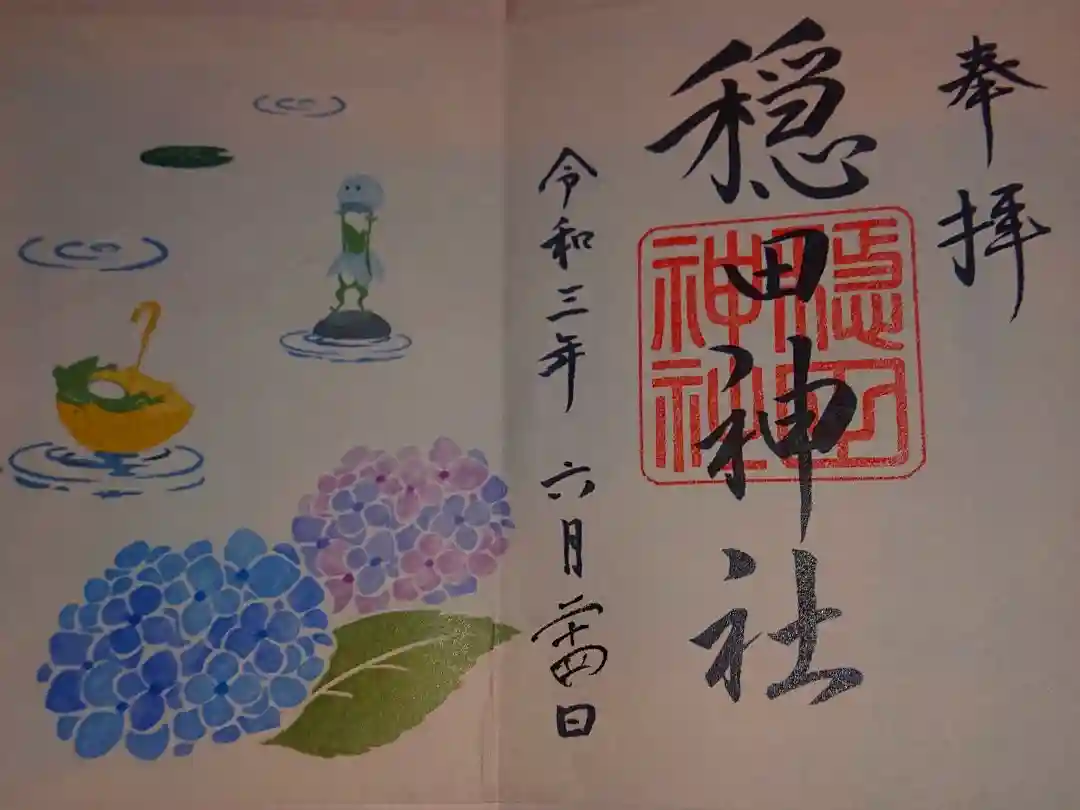 奉拝
穏田神社
隠田
神社
令和三年 六月廿四日